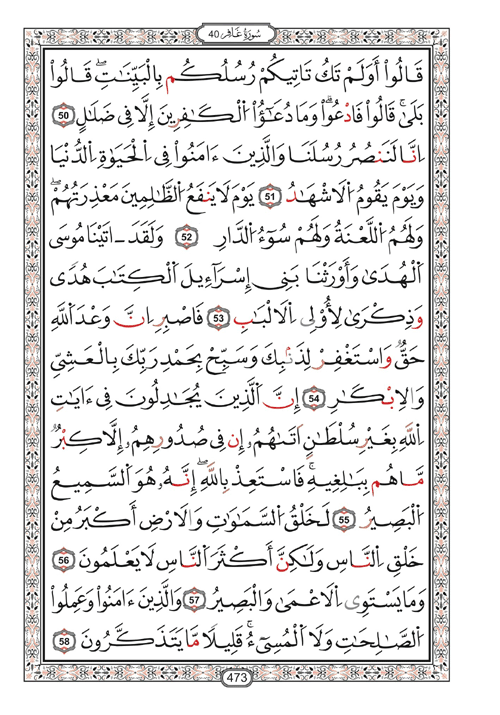 سُورَةُ غَافِر 40
قَالُوٓا۟ أَوَلَمْ تَكُ تَاتِيكُمْ رُسُلُكُم بِالْبَيِّنَٰتِۖ قَالُوا۟
بَلَىٰۚ قَالُوا۟ فَادْعُوا۟ۗ وَمَا دُعَٰٓؤُا۟ اُ۬لْكَٰفِرِينَ إِلَّا فِے ضَلَٰلٍ 50
اِنَّا لَنَنصُرُ رُسُلَنَا وَالَّذِينَ ءَامَنُوا۟ فِے اِ۬لْحَيَوٰةِ اِ۬لدُّنْيَا
وَيَوْمَ يَقُومُ اُ۬لَاشْهَٰدُ 51 يَوْمَ لَا يَنفَعُ اُ۬لظَّٰلِمِينَ مَعْذِرَتُهُمْۖ
وَلَهُمُ اُ۬للَّعْنَةُ وَلَهُمْ سُوٓءُ اُ۬لدَّارِ 52 وَلَقَدَ اتَيْنَا مُوسَى
اَ۬لْهُدَىٰ وَأَوْرَثْنَا بَنِےٓ إِسْرَآءِيلَ اَ۬لْكِتَٰبَ هُدىٗ
وَذِكْرَىٰ لِأُو۟لِے اِ۬لَالْبَٰبِ 53 فَاصْبِرِ اِنَّ وَعْدَ اَ۬للَّهِ
حَقّٞ وَاسْتَغْفِرْ لِذَنۢبِكَ وَسَبِّحْ بِحَمْدِ رَبِّكَ بِالْعَشِيِّ
وَالِابْكٰ۪رِ 54 إِنَّ اَ۬لَّذِينَ يُجَٰدِلُونَ فِےٓ ءَايَٰتِ
اِ۬للَّهِ بِغَيْرِ سُلْطَٰنٍ اَتٰ۪هُمُۥٓ إِن فِے صُدُورِهِمُۥٓ إِلَّا كِبْرٞ
مَّا هُم بِبَٰلِغِيهِۚ فَاسْتَعِذْ بِاللَّهِۖ إِنَّهُۥ هُوَ اَ۬لسَّمِيعُ
اُ۬لْبَصِيرُ 55 لَخَلْقُ اُ۬لسَّمَٰوَٰتِ وَالَارْضِ أَكْبَرُ مِنْ
خَلْقِ اِ۬لنَّاسِ وَلَٰكِنَّ أَكْثَرَ اَ۬لنَّاسِ لَا يَعْلَمُونَ 56
وَمَا يَسْتَوِے اِ۬لَاعْمَىٰ وَالْبَصِيرُ 57 وَالَّذِينَ ءَامَنُوا۟ وَعَمِلُوا۟
اُ۬لصَّٰلِحَٰتِ وَلَا اَ۬لْمُسِےٓءُۚ قَلِيلٗا مَّا يَتَذَكَّرُونَ 58
473